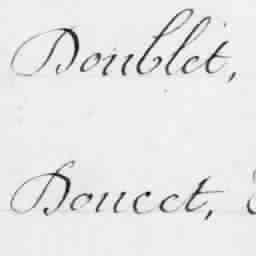 Doublet,
Doucet,